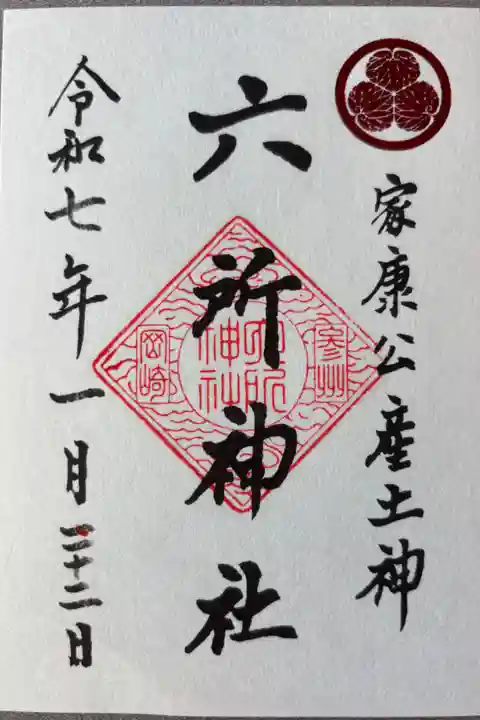 家康公産土神
六所神社
參州
六所神社
岡崎
令和七年一月二十二日